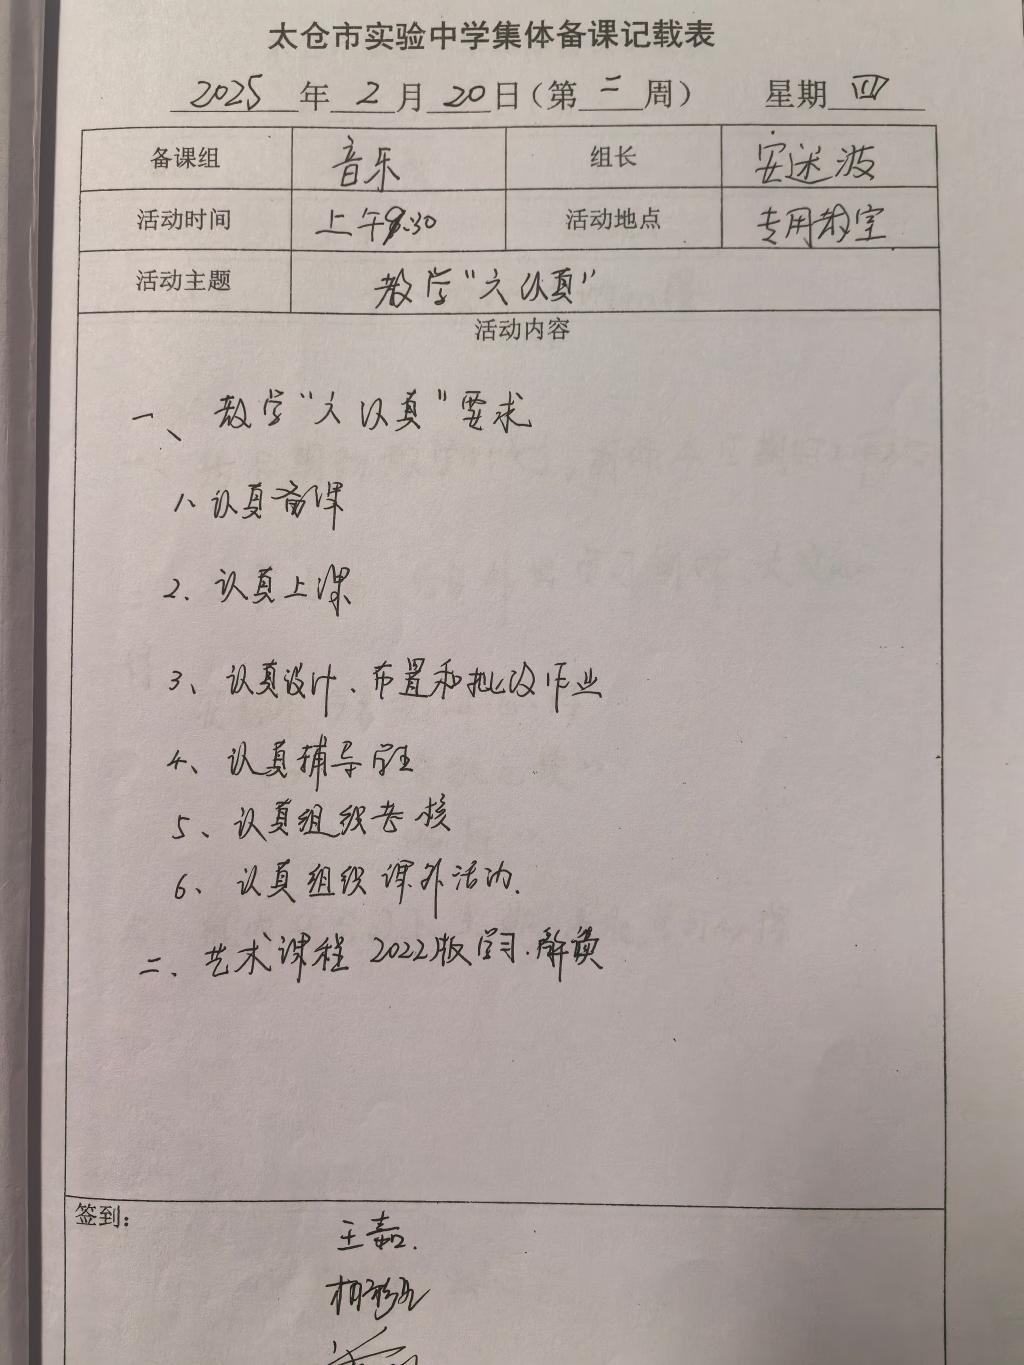 太仓市实验中学集体备课记载表
2025年2月20日（第二周） 星期四
备课组 音乐 组长 安述波
活动时间 上午9:30 活动地点 专用教室
活动主题 教学“六认真”
活动内容
一、教学“六认真”要求
1、认真备课
2、认真上课
3、认真设计、布置和批改作业
4、认真辅导学生
5、认真组织考核
6、认真组织课外活动.
二、艺术课程 2022版学习.解读
签到：
王嘉.